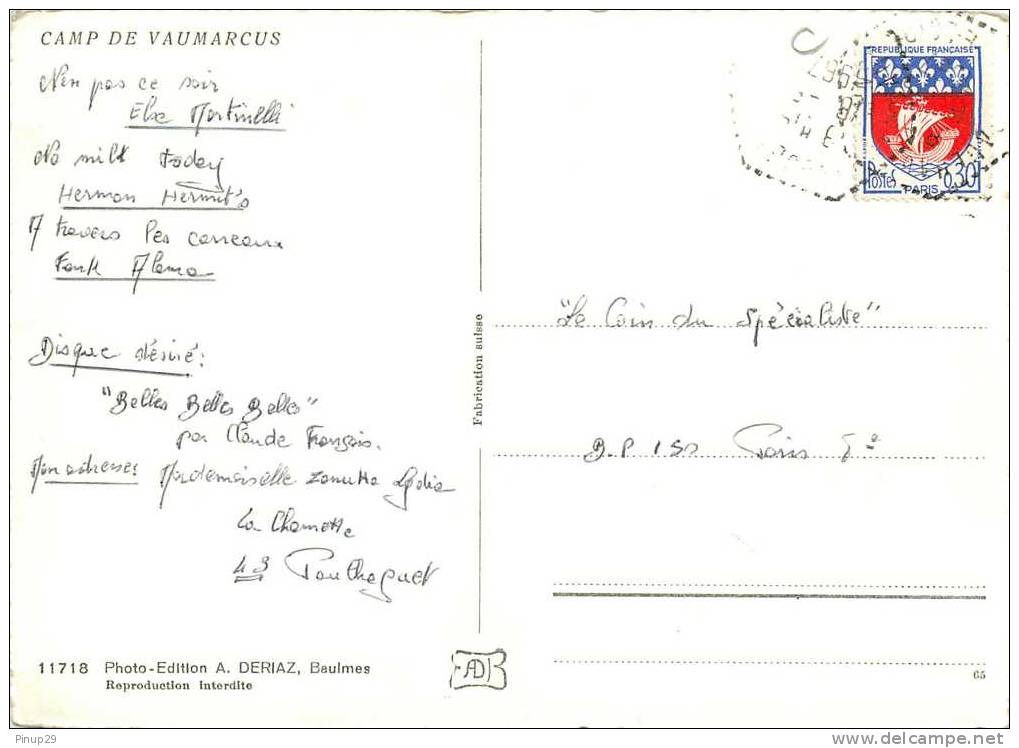 CAMP DE VAUMARCUS
Non pas ce soir
Elsa Martinelli
No milk today
Herman Hermit's
A travers les carreaux
Frank Alamo
Disque désiré :
"Belles Belles Belles"
par Claude François.
Mon adresse : Mademoiselle Zanutta Lydia
La Chomette
43 Paulhaguet
11718 Photo-Edition A. DERIAZ, Baulmes
Reproduction interdite
Fabrication suisse
AD
REPUBLIQUE FRANÇAISE
POSTES PARIS 0,30
1967
"Le Coin du Spécialiste"
B.P 150 Paris
65
Pinup29
www.delcampe.net